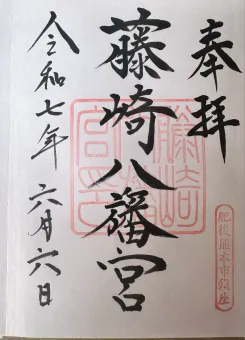 奉拝
肥後熊本市鎮座
藤崎八旛宮
令和七年 六月六日